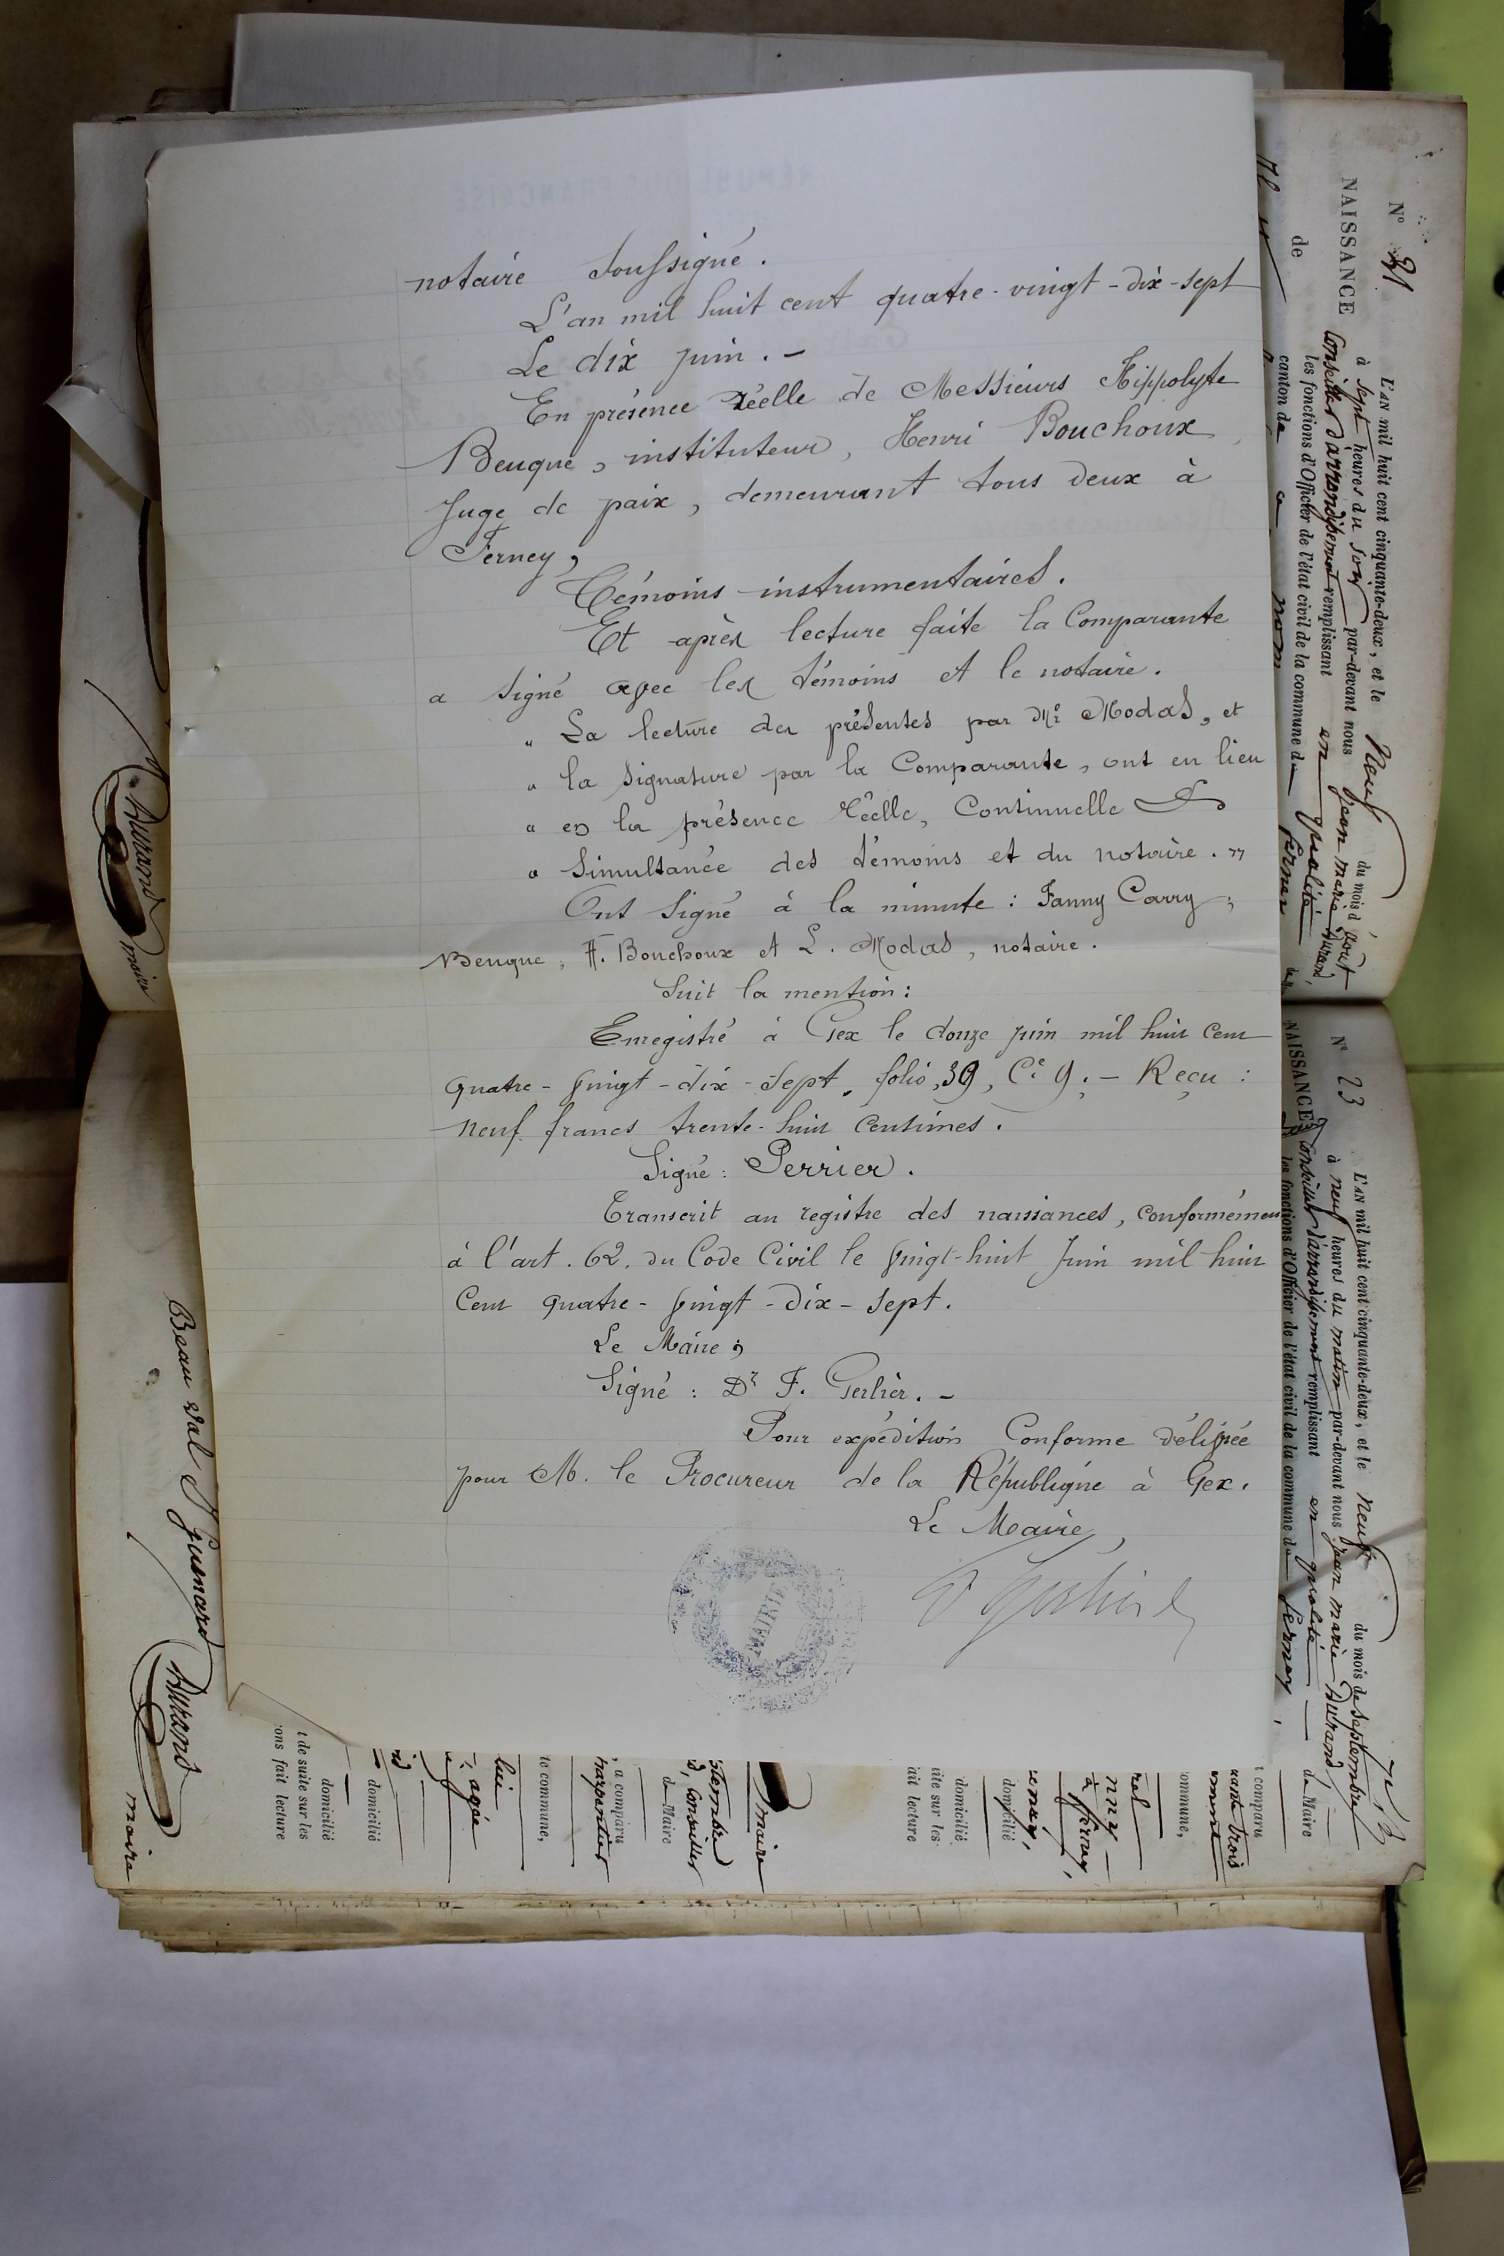 notaire soussigné.
L'an mil huit cent quatre-vingt-dix-sept
Le dix juin. -
En présence réelle de Messieurs Hippolyte
Beuque, instituteur, Henri Bouchoux
Juge de paix, demeurant tous deux à
Ferney,
Témoins instrumentaires.
Et après lecture faite la Comparante
a signé avec les témoins et le notaire.
" La lecture des présentes par Me Modas, et
" la signature par la Comparante, ont eu lieu
" en la présence réelle, Continuelle &
" Simultanée des témoins et du notaire. "
Ont signé à la minute : Fanny Carry,
Beuque, H. Bouchoux et L. Modas, notaire.
Suit la mention :
Enregistré à Gex le douze juin mil huit cent
quatre-vingt-dix-sept, folio, 39, Ce 9. - Reçu :
neuf francs trente-huit centimes.
Signé : Perrier.
Transcrit au registre des naissances, conformément
à l'art. 62. du Code Civil le vingt-huit Juin mil huit
Cent quatre-vingt-dix-sept.
Le Maire,
Signé : Dr F. Gerlier. -
Pour expédition Conforme délivrée
pour M. le Procureur de la République à Gex.
Le Maire,
MAIRIE
N° 21
NAISSANCE
de
L'AN mil huit cent cinquante-deux, et le Neuf du mois d'août
à sept heures du soir par-devant nous jean marie Durand,
Conseiller d'arrondissement remplissant en qualité
les fonctions d'Officier de l'état civil de la commune de ferney
canton de
N° 23
NAISSANCE
L'AN mil huit cent cinquante-deux, et le neuf du mois de septembre
à neuf heures du matin par-devant nous jean marie Durand
Conseiller d'arrondissement remplissant en qualité de Maire
les fonctions d'Officier de l'état civil de la commune de ferney,
t comparu
commune,
ferney,
domicilié
domicilié
ite sur les
ait lecture
maire
Conseiller
de Maire
a comparu
te commune,
lui
agée
domicilié
domicilié
t de suite sur les
ons fait lecture
Durand maire
Durand maire